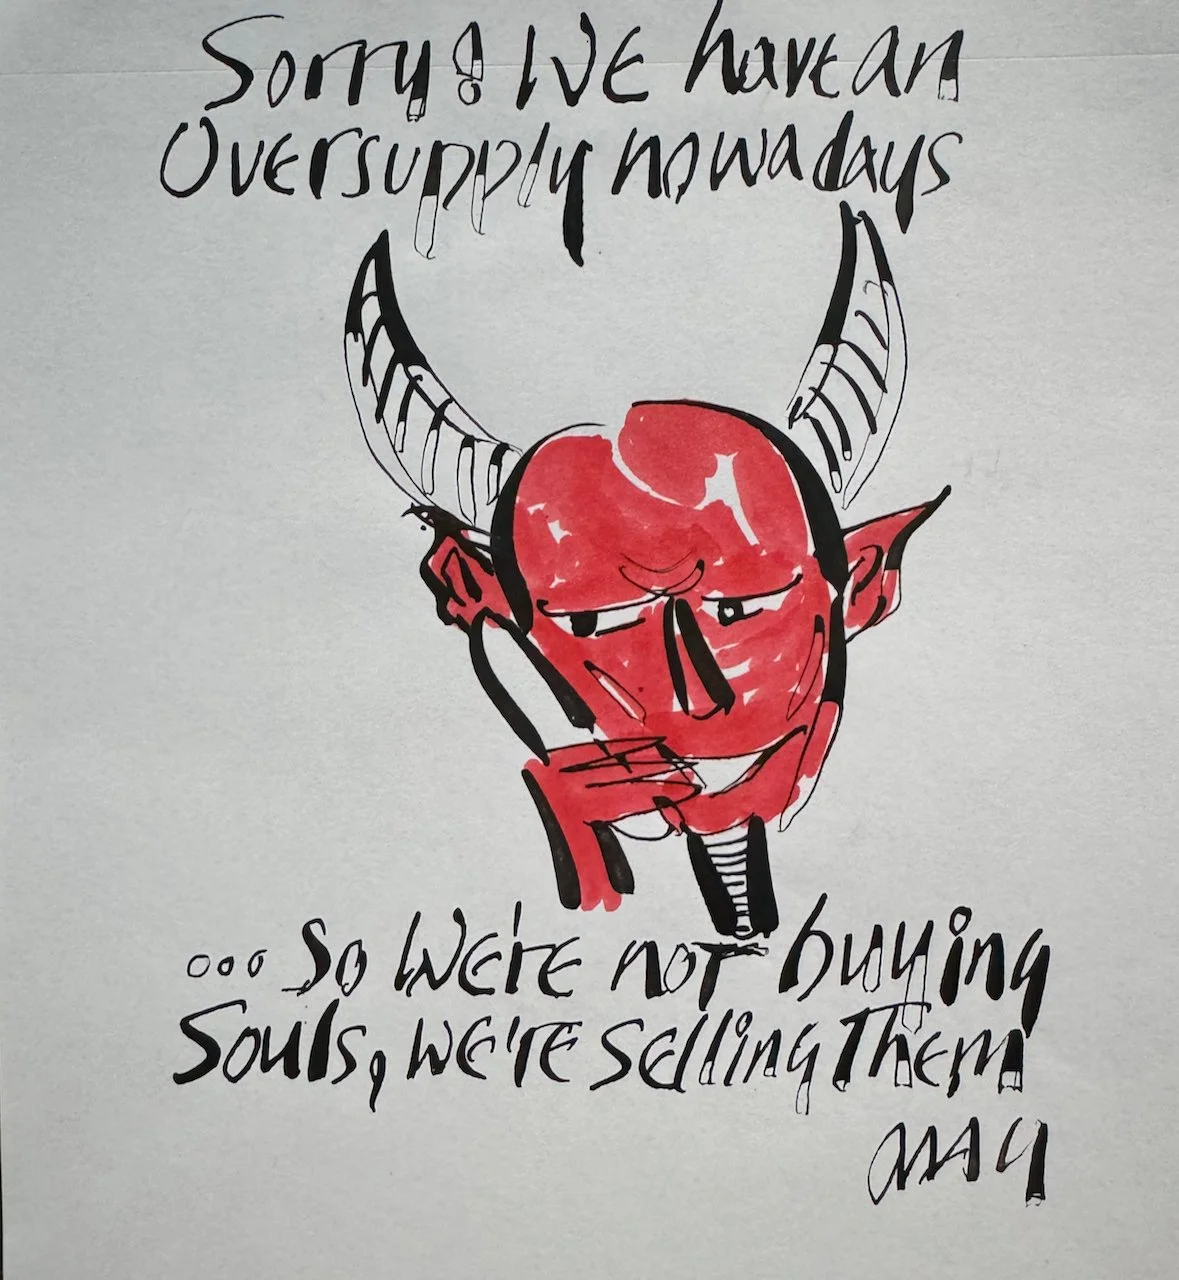 Sorry! We have an
Oversupply nowadays
...So We're not buying
Souls, We're Selling Them